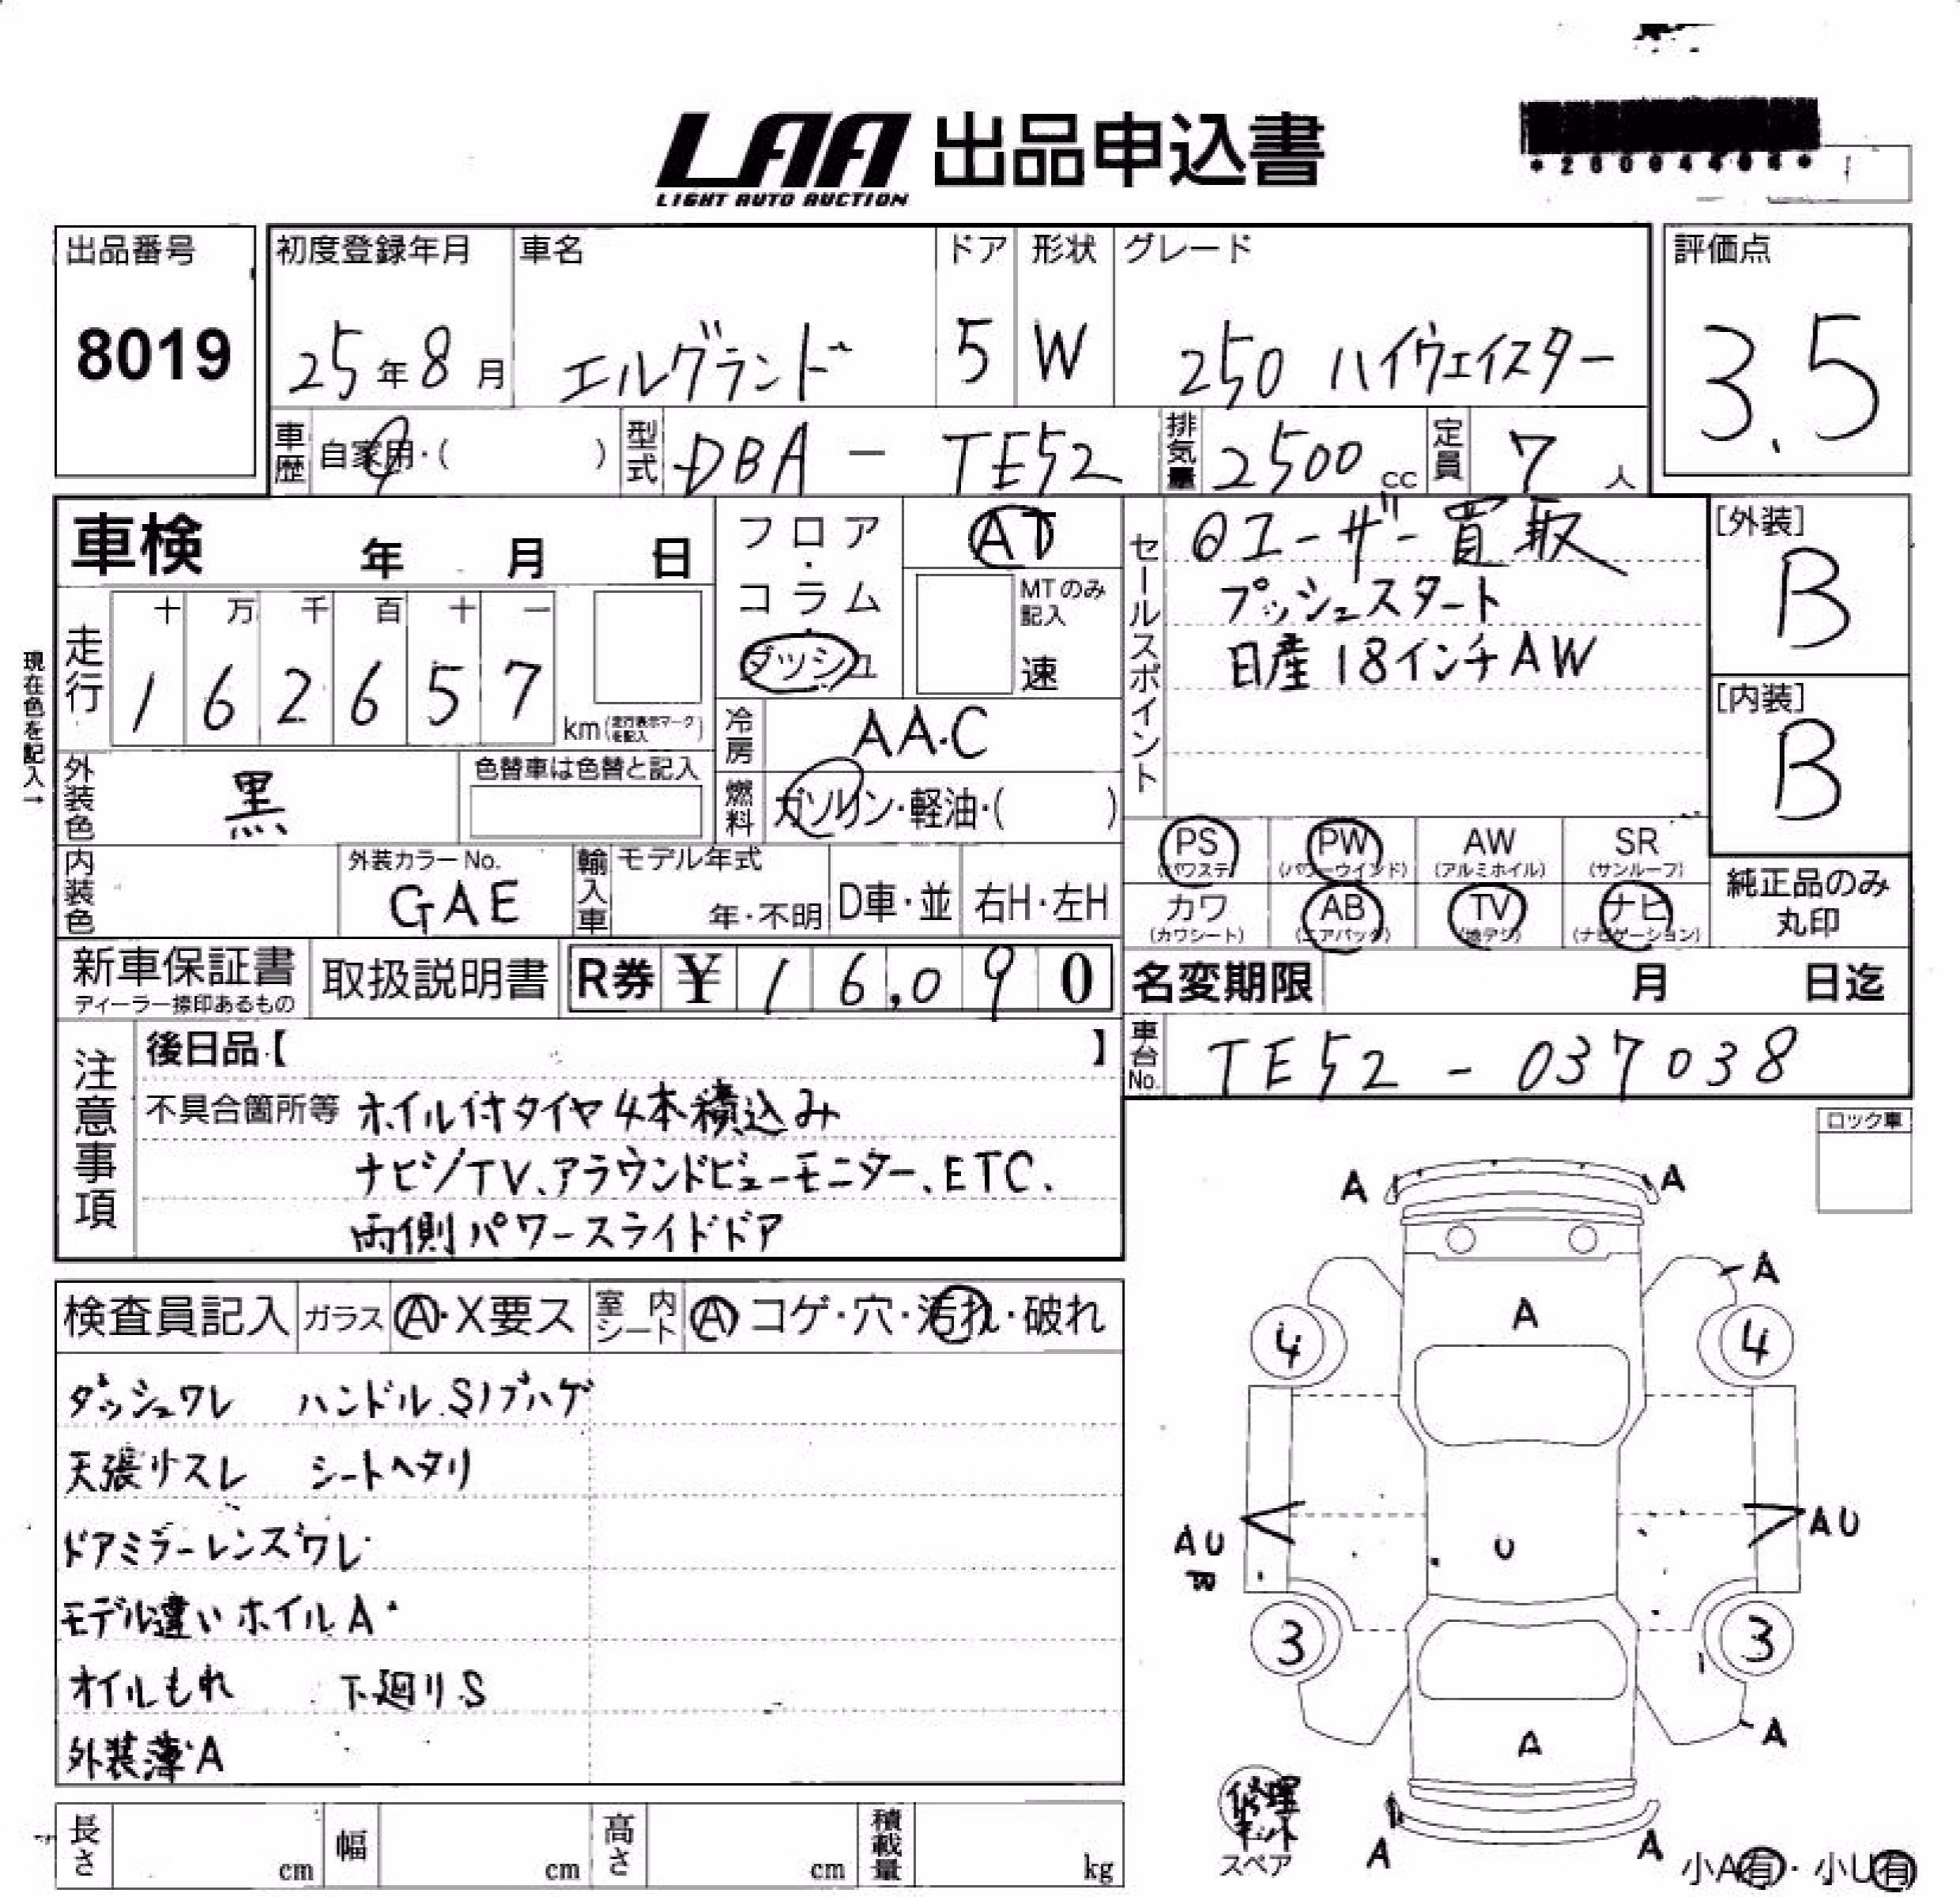 LAA 出品申込書
LIGHT AUTO AUCTION
出品番号 初度登録年月 車名 ドア 形状 グレード 評価点
8019 25年8月 エルグランド 5 W 250 ハイウェイスター 3.5
車歴 自家用・( ) 型式 DBA - TE52 排気量 2500cc 定員 7人
車検 年 月 日
フロア・コラム・ダッシュ
AT
MTのみ記入
速
セールスポイント
◎ユーザー買取
プッシュスタート
日産18インチAW
[外装]
B
[内装]
B
現在色を記入→
走行 十 万 千 百 十 一
1 6 2 6 5 7 km(走行表示マークを記入)
冷房 AA.C
外装色 黒 色替車は色替と記入
燃料 ガソリン・軽油・( )
PS(パワステ) PW(パワーウインド) AW(アルミホイル) SR(サンルーフ)
カワ(カワシート) AB(エアバック) TV(地デジ) ナビ(ナビゲーション)
純正品のみ丸印
内装色 外装カラーNo. GAE 輸入車 モデル年式 年・不明 D車・並 右H・左H
新車保証書 ディーラー捺印あるもの 取扱説明書 R券 ¥ 16,090
名変期限 月 日迄
車台No. TE52 - 037038
注意事項
後日品【 】
不具合箇所等 ホイル付タイヤ4本積込み
ナビジTV、アラウンドビューモニター、ETC、
両側パワースライドドア
ロック車
検査員記入 ガラス A・X要ス 室内シート A コゲ・穴・汚れ・破れ
ダッシュワレ ハンドル.Sノブハゲ
天張リスレ シートヘタリ
ドアミラーレンズワレ
モデル違いホイルA
オイルもれ 下廻りS
外装薄A
A A
A
A
4 4
AU AU
U
3 3
A
A
A A
修理キット
スペア
小A有・小U有
長さ cm 幅 cm 高さ cm 積載量 kg